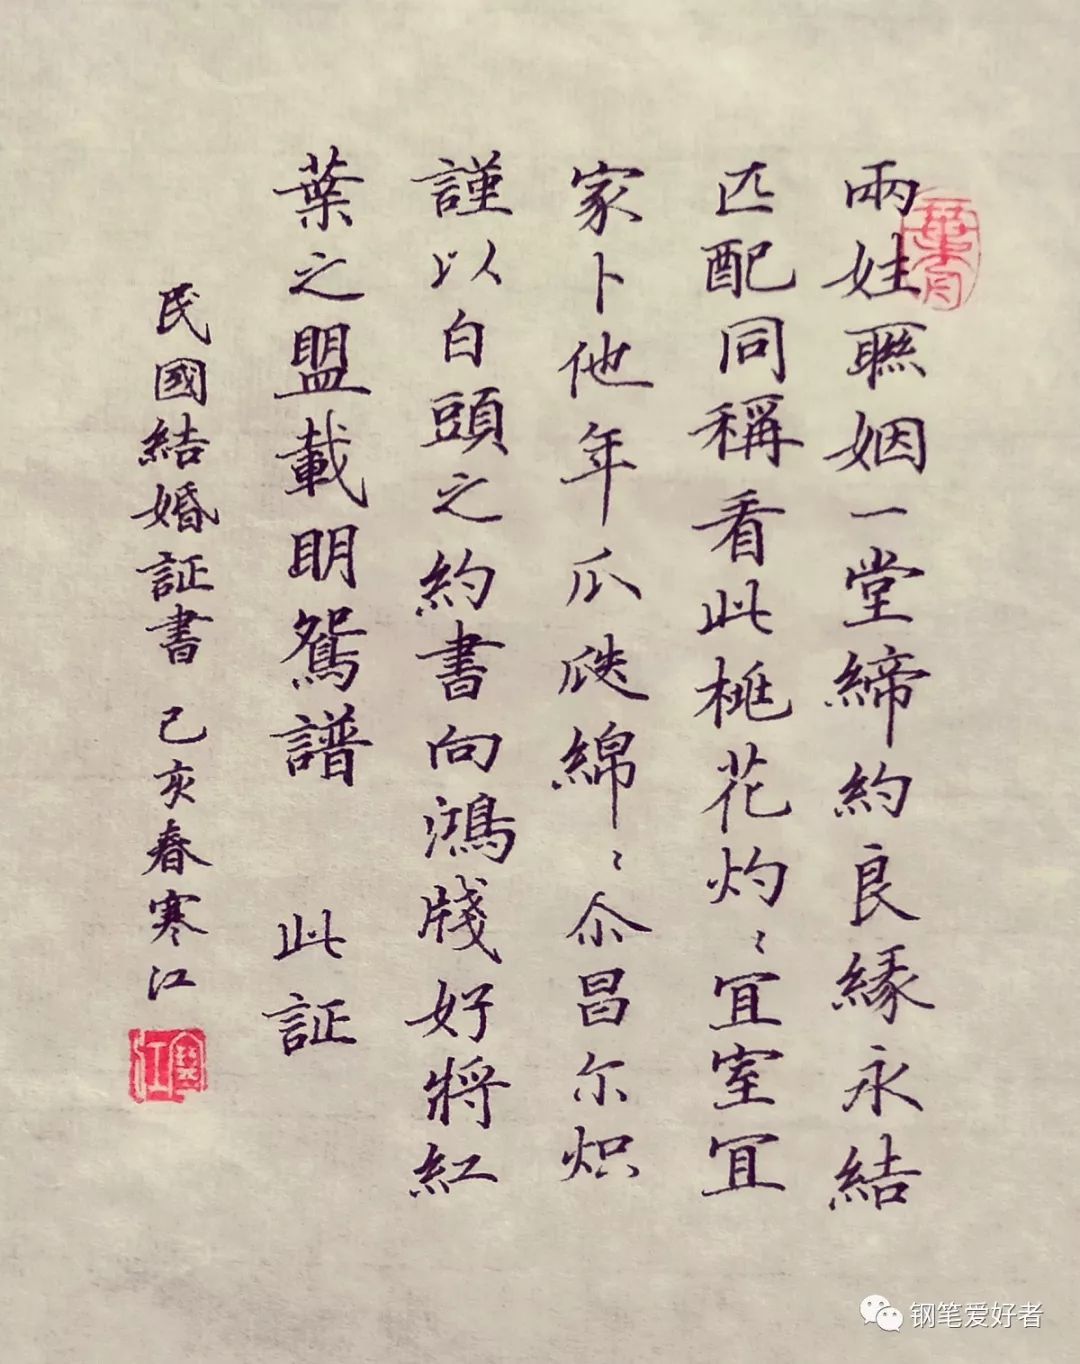 兩姓聯姻一堂締約良緣永結
匹配同稱看此桃花灼〻宜室宜
家卜他年瓜瓞綿〻尒昌尔炽
謹以白頭之約書向鴻牋好將紅
葉之盟載明鴛譜 此証
民國結婚証書 己亥春寒江
寒江
钢笔爱好者